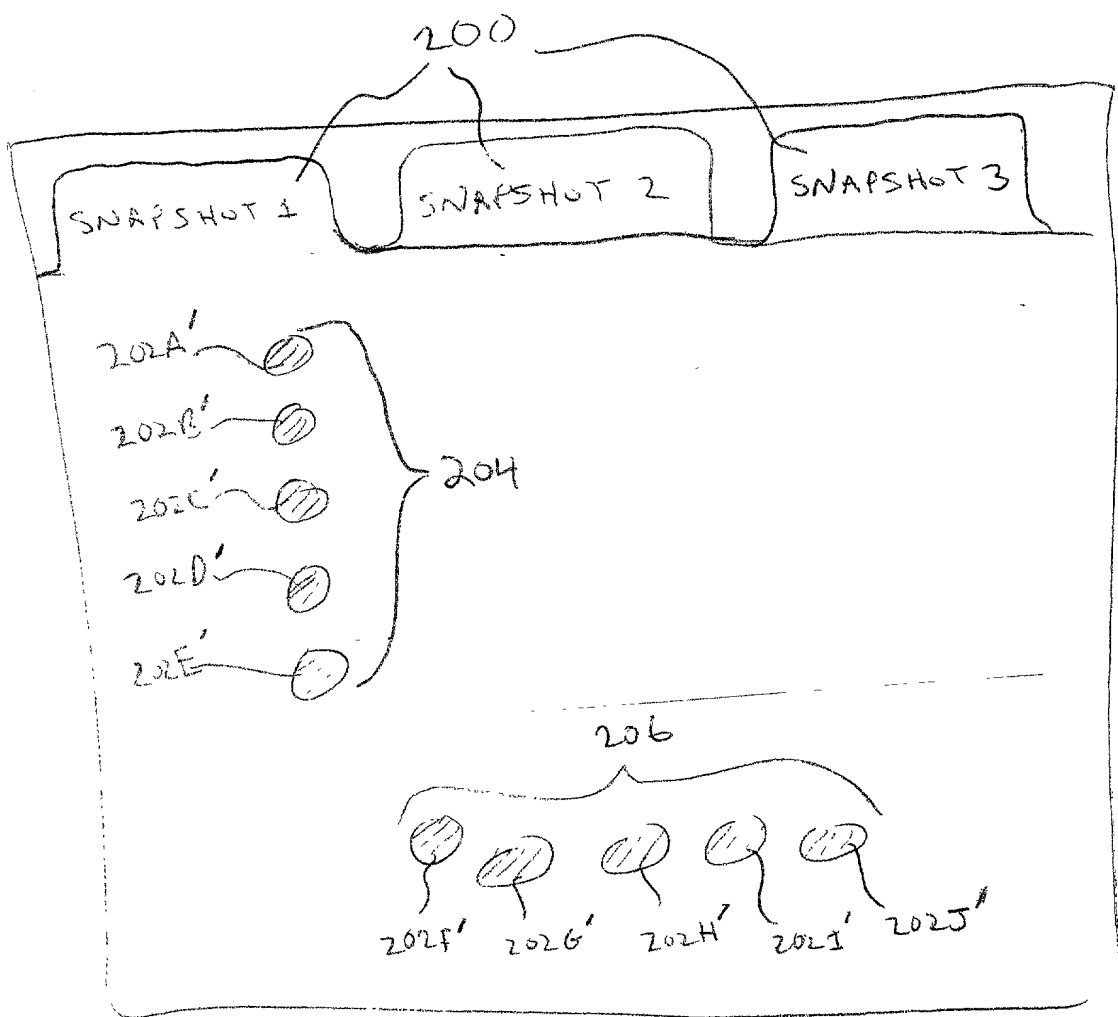 200
SNAPSHOT 1
SNAPSHOT 2
SNAPSHOT 3
202A'
202B'
202C'
202D'
202E'
204
206
202F'
202G'
202H'
202I'
202J'